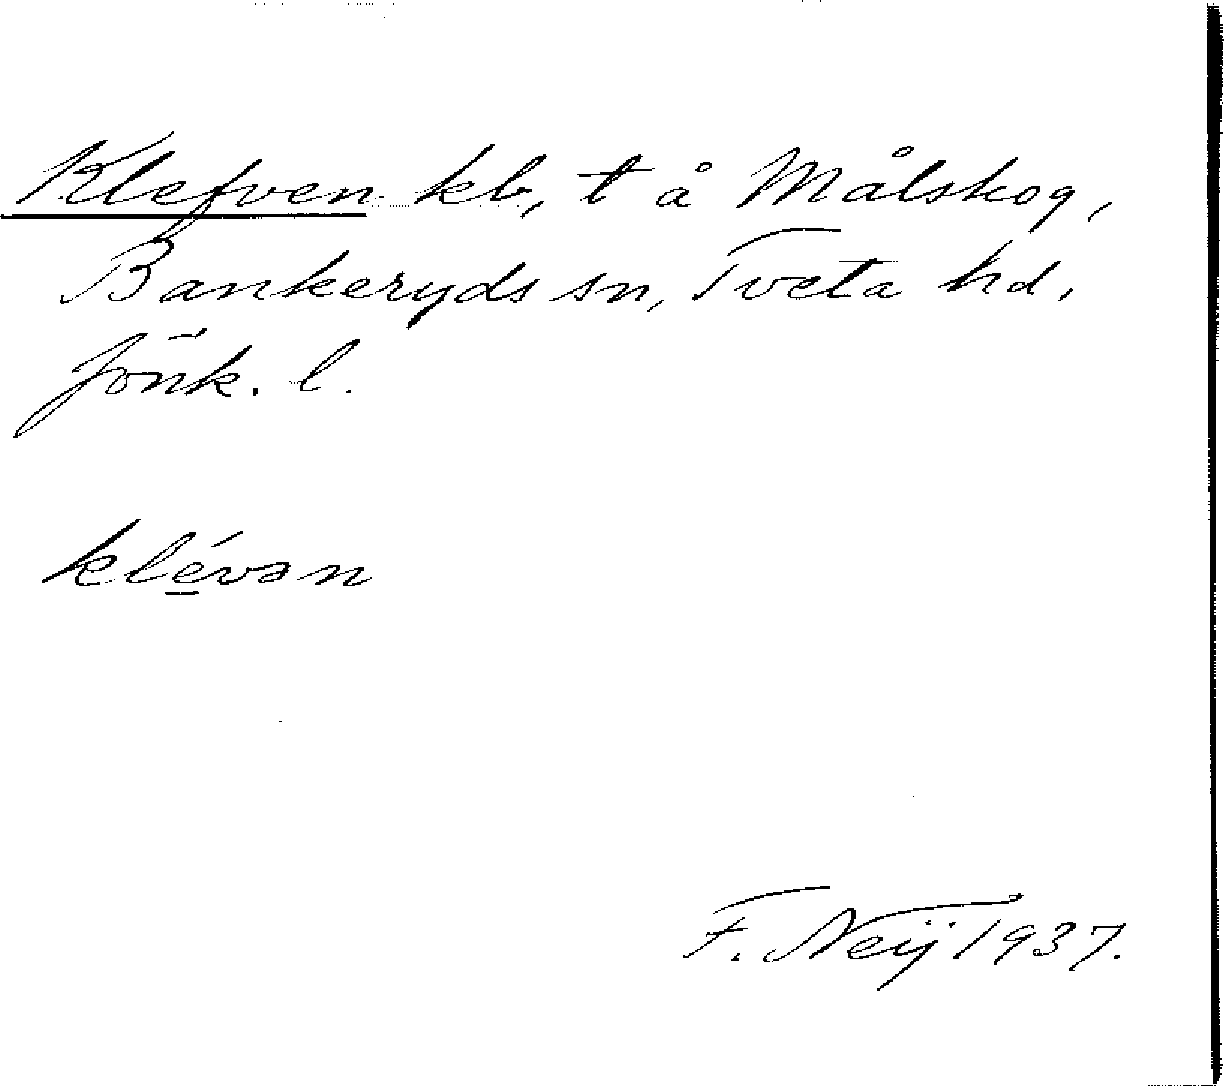 Klefven kb, t å Målskog,
Bankeryds sn, Tveta hd,
Jönk. l.
klévən
F. Neij 1937.